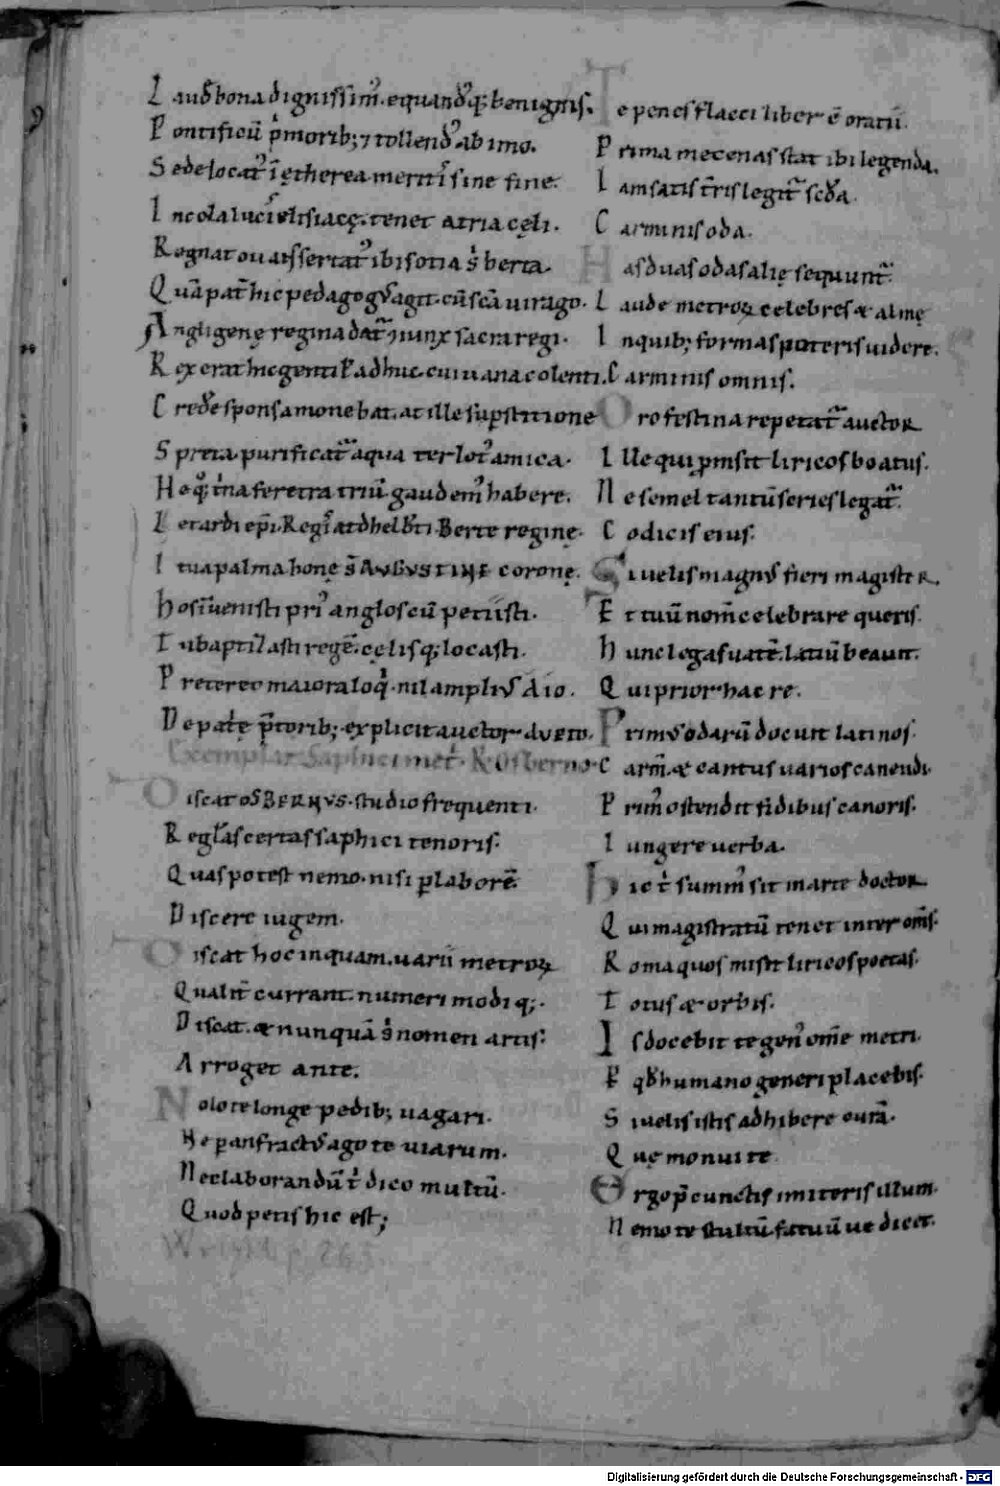 Laudib bona dignissim᾽. equandꝰq; benignis.
Pontificū p̄morib; ⁊ tollendꝰ ab imo.
Sede locatꝰ ī ętherea meriti sine fine.
Incola luci tenet atria cęli.
Regnat ouat ibi sotia s̓ berta.
Quā pat̄ hic pedagogꝰ agit. cū scā uirago.
Anglıgenę regina dat᷑ sacra regi.
Rex erat hic gentil̓ adhuc. cui uana colenti.
Crede sponsa monebat. at ille supstitione
Spreta. purificat᷑ aqua ter lotꝰ amica.
feretra triū. gaudemꝰ habere.
Letardi ep̄i. Regis̓ atdhelb̄ti. Berte reginę.
I tua palma bonę s̄ AVGVSTINE coronę.
hostī uenisti priꝰ anglos cū petiisti.
Tu baptizasti regē. cęlisq; locasti.
Pretereo maiora loq̓. nil ampliꝰ dio.
De pat̄ę p̄torib; explicit auctor
Exemplar Saphici met̓. Osberno
Discat OSBERNVS. studio frequenti.
Reglas certas saphici tenoris.
Quas potest nemo. nisi p laborē.
Discere iugem.
Discat hoc inquam. uarii metroꝝ
Qualit̄ currant. numeri modiq;.
Discat. & nunquā s̓ nomen artis:
Arroget ante.
Nolo te longe pedib; uagari.
Ne p anfractꝰ ago te uiarum.
Nec laborandū t̓ dico multū.
Quod petis hic est;
Wright p. 265
Te penes flacci liber ē oratii.
Prima mecenas stat ibi legenda.
Iam satis t̄ris legit᷑ scda.
Carminis oda.
Has duas odas alię sequunt᷑.
Laude metroꝝ celebres & almę
In quib; formas poteris uidere.
Carminis omnis.
Pro festina repetat᷑ auctoR
Ille qui pmsit liricos boatus.
Ne semel tantū series legat᷑.
Codicis eius.
Si uelis magnꝰ fieri magisteR.
Et tuū nom̄ celebrare queris.
Hunc legas uatē. latiū beauit.
Qui prior hac re.
Primꝰ odarū docuit latinos.
Carm̄. & cantus uarios canendi.
Primꝰ ostendit fidibus canoris.
Iungere uerba.
Hic t̓ summꝰ sit in arte doctoR
Qui magistratū tenet inter om̄s.
Roma quos misit liricos poetas.
Totus & orbis.
Is docebit te genꝰ om̄e metri.
P qd humano generi placebis.
Si uelis istis adhibere curā.
Quę monui te
Ergo p̄ cunctis imiteris illum.
Nemo te stultū fatuū ue dicet.
Digitalisierung gefördert durch die Deutsche Forschungsgemeinschaft - DFG